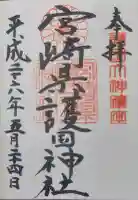 奉拝
宮崎県護国神社
平成二十八年五月二十四日